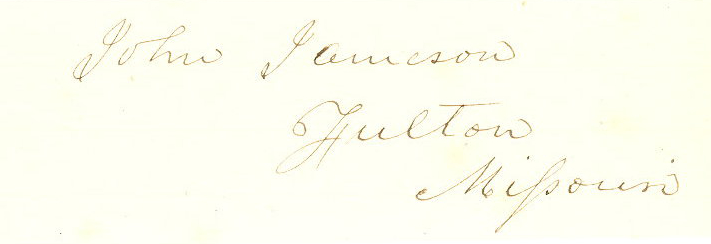 John Jameson
Fulton
Missouri